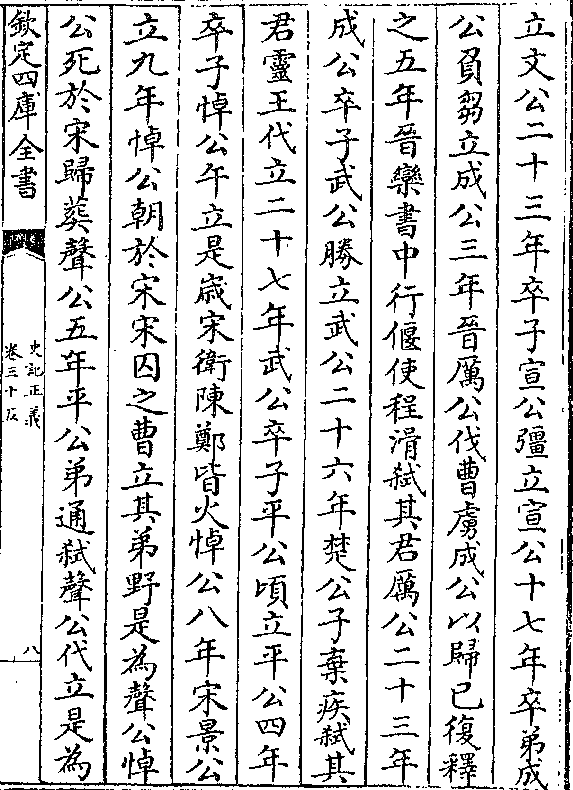 立文公二十三年卒子宣公彊立宣公十七年卒弟成
公負芻立成公三年晉厲公伐曹虜成公以歸已復釋
之五年晉欒書中行偃使程滑弑其君厲公二十三年
成公卒子武公勝立武公二十六年楚公子棄疾弑其
君靈王代立二十七年武公卒子平公頃立平公四年
卒子悼公午立是嵗宋衛陳鄭皆火悼公八年宋景公
立九年悼公朝於宋宋囚之曹立其弟野是為聲公悼
公死於宋歸葬聲公五年平公弟通弑聲公代立是為
欽定四庫全書
史記正義
卷三十五
八